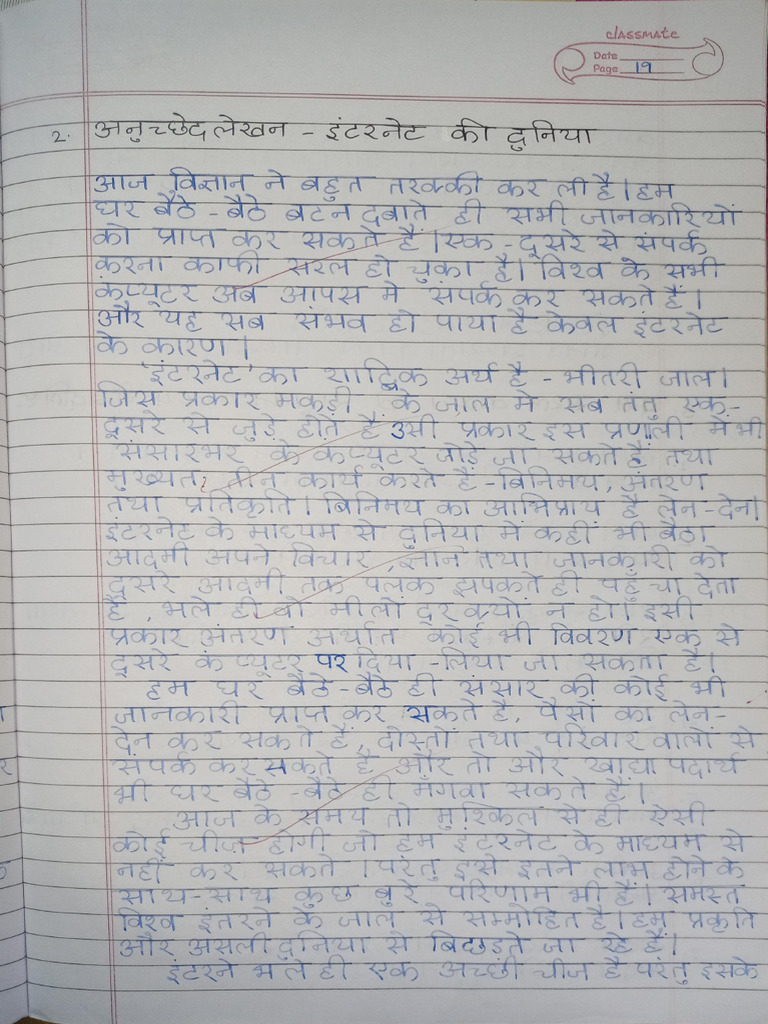 classmate
Date
Page 19
2. अनुच्छेद लेखन - इंटरनेट की दुनिया
आज विज्ञान ने बहुत तरक्की कर ली है। हम
घर बैठे - बैठे बटन दबाते ही सभी जानकारियों
को प्राप्त कर सकते हैं। एक - दूसरे से संपर्क
करना काफी सरल हो चुका है। विश्व के सभी
कंप्यूटर अब आपस मे संपर्क कर सकते हैं।
और यह सब संभव हो पाया है केवल इंटरनेट
के कारण।
'इंटरनेट' का शाब्दिक अर्थ है - भीतरी जाल।
जिस प्रकार मकड़ी के जाल मे सब तंतु एक-
दूसरे से जुड़े होते है उसी प्रकार इस प्रणाली मे भी
संसारभर के कंप्यूटर जोड़े जा सकते है तथा
मुख्यत: तीन कार्य करते है - विनिमय, अंतरण
तथा प्रतिकृति। विनिमय का अभिप्राय है लेन - देन।
इंटरनेट के माध्यम से दुनिया में कहीं भी बैठा
आदमी अपने विचार, ज्ञान तथा जानकारी को
दूसरे आदमी तक पलक झपकते ही पहुँचा देता
है, भले ही वो मीलों दूर क्यों न हो। इसी
प्रकार अंतरण अर्थात कोई भी विवरण एक से
दूसरे कंप्यूटर पर दिया - लिया जा सकता है।
हम घर बैठे - बैठे ही संसार की कोई भी
जानकारी प्राप्त कर सकते है, पैसों का लेन-
देन कर सकते हैं, दोस्तों तथा परिवार वालों से
संपर्क कर सकते है और तो और खाद्य पदार्थ
भी घर बैठे - बैठे ही मँगवा सकते हैं।
आज के समय तो मुश्किल से ही ऐसी
कोई चीज़ होगी जो हम इंटरनेट के माध्यम से
नहीं कर सकते। परंतु इसे इतने लाभ होने के
साथ - साथ कुछ बुरे परिणाम भी हैं। समस्त
विश्व इंतरने के जाल से सम्मोहित है। हम प्रकृति
और असली दुनिया से बिछड़ते जा रहे हैं।
इंटरने भले ही एक अच्छी चीज है परंतु इसके